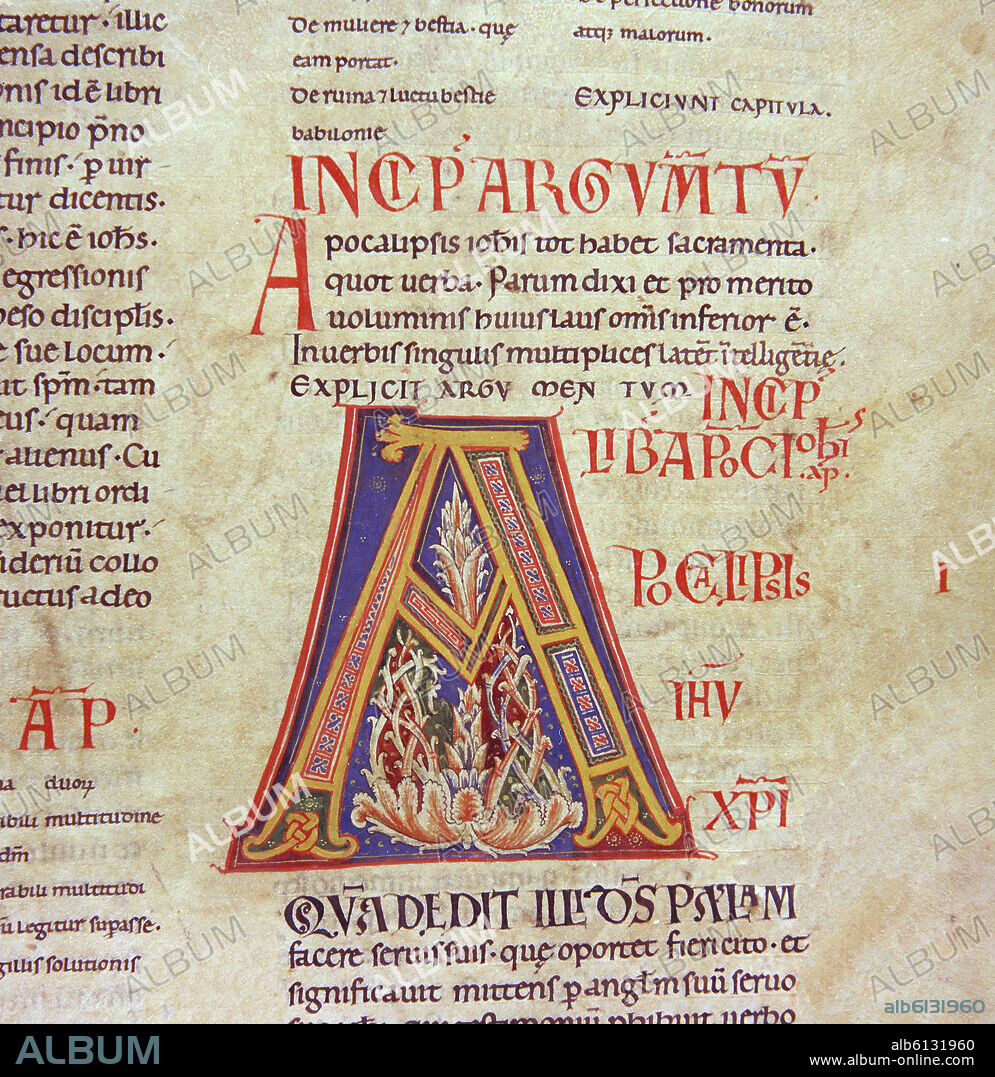 taretur · illic
ensa describi
oms idē libri
ncipio p̄no
finis · ꝑ uir
tur dicentis·
s· hic ē ioh̄s·
egressionis
peso discipl̄is·
e sue locum·
it sp̄m· tam
cus· quam
auenus· Cu
uel libri ordi
exponitur·
ideriū collo
ructus adeo
AP·
na duoꝝ
abili multitudine
dm̄
rabili multitudi
ū legitur supasse·
gillis solutionis
De muliere ⁊ bestia· quę
eam portat·
De ruina ⁊ luctu bestie
babilonie
De perfectione bonorum
atq; malorum·
EXPLICIVNT CAPITVLA.
INCIP̄ ARGVM̄TV̄
Apocalipsis ioh̄is tot habet sacramenta·
quot uerba· Parum dixi et pro merito
uoluminis huius laus om̄is inferior ē·
In uerbis singulis multiplices latēt ītelligētię·
EXPLICIT ARGVMENTVM
INCIP̄
LIB̄ APOC̄ IOH̄IS
AP̄·
A
POCALIPSIS
IH̄V
XP̄I
I
QVĀ DEDIT ILLI D̄S PALAM
facere seruis suis· quę oportet fieri cito· et
significauit mittens ꝑ angl̄m suū seruo
ALBUM
alb6131960
alb6131960
www.album-online.com